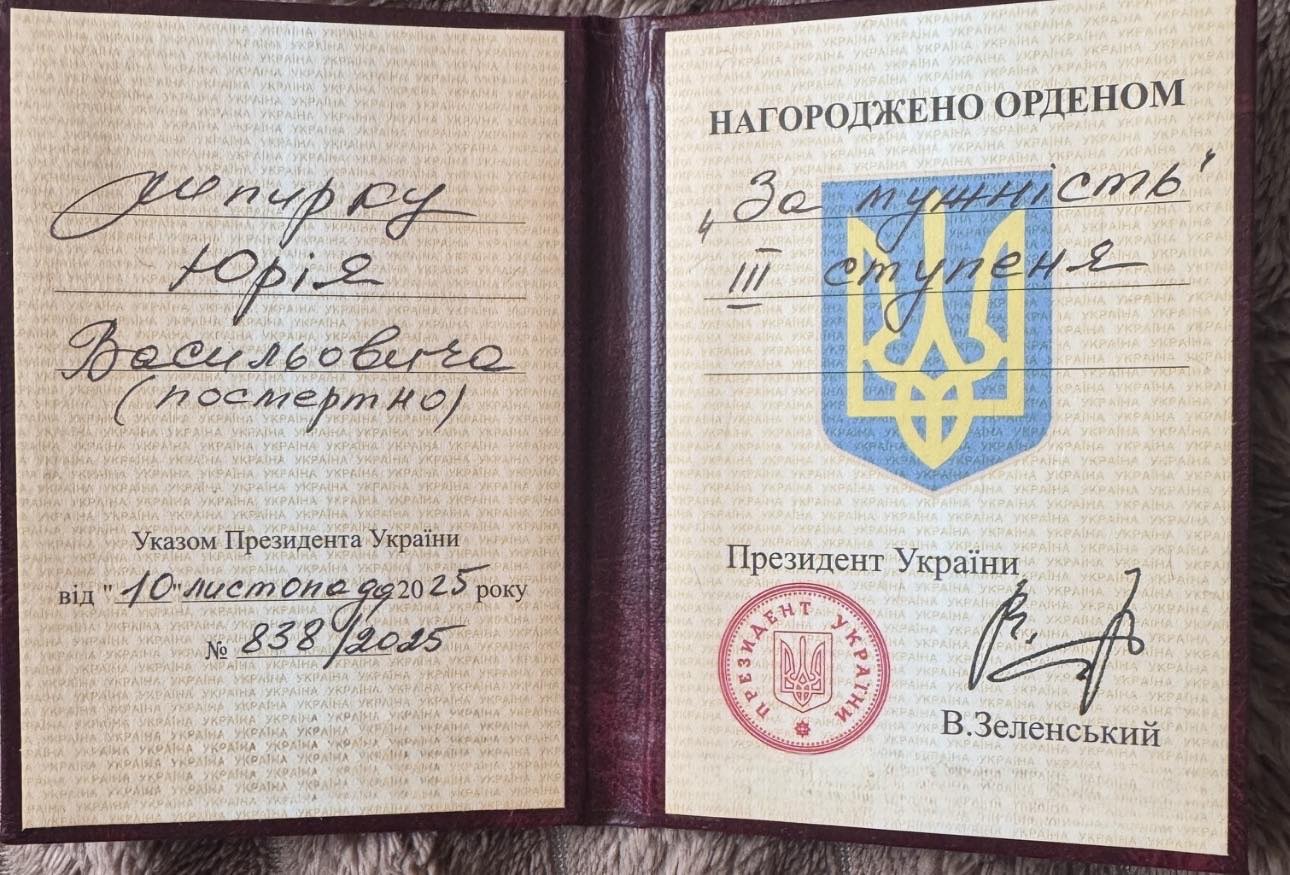 Шпирку
Юрія
Васильовича
(посмертно)
Указом Президента України
від "10" листопада 2025 року
№ 838/2025
НАГОРОДЖЕНО ОРДЕНОМ
„За мужність"
ІІІ ступеня
Президент України
ПРЕЗИДЕНТ УКРАЇНИ
В.Зеленський